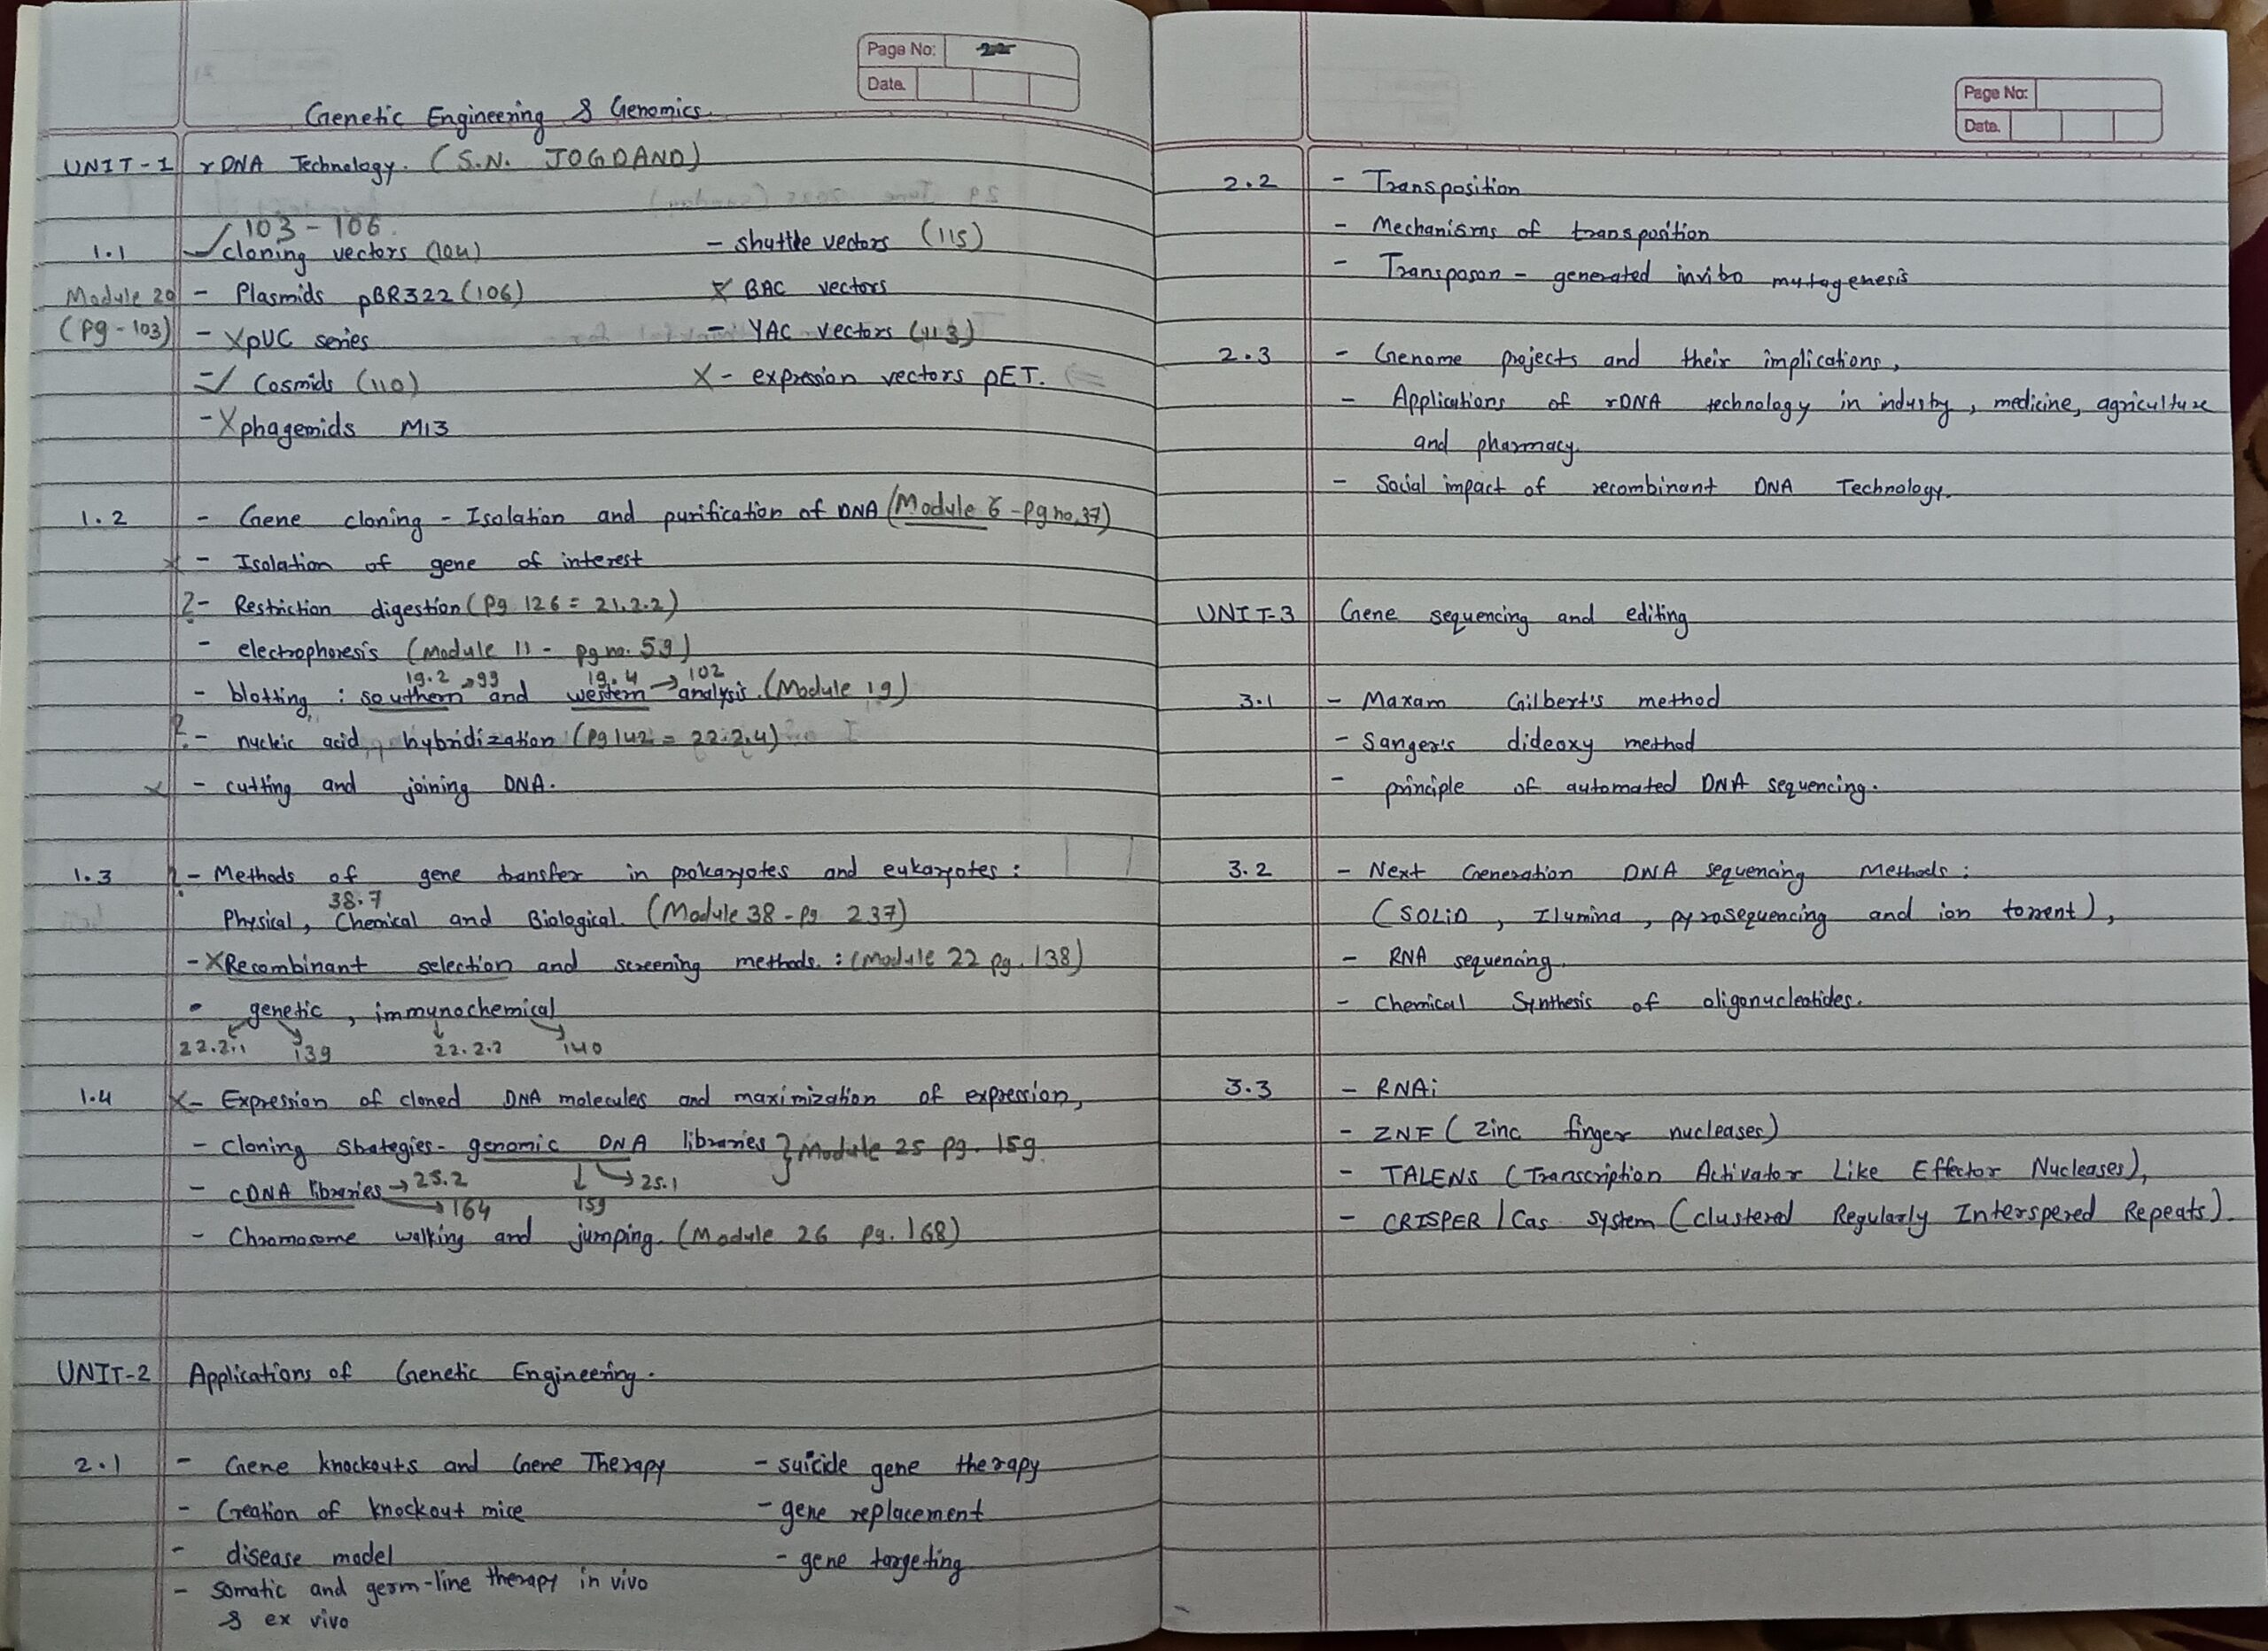 Page No: 22
Date.
Genetic Engineering & Genomics.
UNIT-1 rDNA Technology. (S.N. JOGDAND)
103-106.
1.1 ✓cloning vectors (104) - shuttle vectors (115)
Module 20 - Plasmids pBR322 (106) X BAC vectors
(Pg-103) - XpUC series - YAC vectors (113)
-✓ Cosmids (110) X- expression vectors pET.
-X phagemids M13
1.2 - Gene cloning - Isolation and purification of DNA (Module 6 - pg no. 37)
X - Isolation of gene of interest
?- Restriction digestion (Pg 126 = 21.2.2)
- electrophoresis (Module 11 - pg no. 59)
19.2 → 99 19.4 → 102
- blotting : southern and western analysis. (Module 19)
?- nucleic acid hybridization (Pg 142 = 22.2.4)
X - cutting and joining DNA.
1.3 ?- Methods of gene transfer in prokaryotes and eukaryotes :
38.7
Physical, Chemical and Biological. (Module 38 - Pg 237)
-X Recombinant selection and screening methods. : (Module 22 pg. 138)
• genetic , immunochemical
22.2.1 139 22.2.2 140
1.4 X- Expression of cloned DNA molecules and maximization of expression,
- Cloning strategies - genomic DNA libraries } Module 25 pg. 159
- cDNA libraries → 25.2 ↓ → 25.1
→ 164 159
- Chromosome walking and jumping. (Module 26 pg. 168)
UNIT-2 Applications of Genetic Engineering.
2.1 - Gene knockouts and Gene Therapy - suicide gene therapy
- Creation of knockout mice - gene replacement
- disease model - gene targeting
- somatic and germ-line therapy in vivo
& ex vivo
Page No:
Date.
2.2 - Transposition
- Mechanisms of transposition
- Transposon - generated invibo mutagenesis
2.3 - Genome projects and their implications,
- Applications of rDNA technology in industy, medicine, agriculture
and pharmacy.
- Social impact of recombinant DNA Technology.
UNIT-3 Gene sequencing and editing
3.1 - Maxam Gilbert's method
- Sanger's dideoxy method
- principle of automated DNA sequencing.
3.2 - Next Generation DNA sequencing Methods :
(SOLiD , Ilumina , pyrosequencing and ion torrent),
- RNA sequencing.
- Chemical Synthesis of oligonucleotides.
3.3 - RNAi
- ZNF (Zinc finger nucleases)
- TALENS (Transcription Activator Like Effector Nucleases),
- CRISPER / Cas system (clustered Regularly Interspered Repeats).